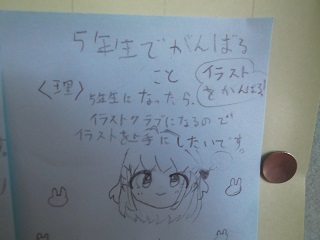 5年生でがんばる
こと
イラスト
をがんばる!
〈理〉
5年生になったら、
イラストクラブになるので
イラストを上手にしたいです。